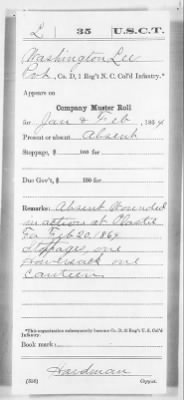 L | 35 | U.S.C.T.
Washington Lee
Pvt., Co. D, 1 Reg't N. C. Col'd Infantry.*
Appears on
Company Muster Roll
for Jan & Feb, 1864
Present or absent Absent
Stoppage, $ 100 for
Due Gov't, $ 100 for
Remarks: Absent Wounded
in action at Olustee
Fa Feb 20. 1864
Stoppages, one
haversack one
Canteen
*This organization subsequently became Co. D, 35 Reg't U. S. Col'd
Infantry.
Book mark:
Hardman
(358) Copyist.